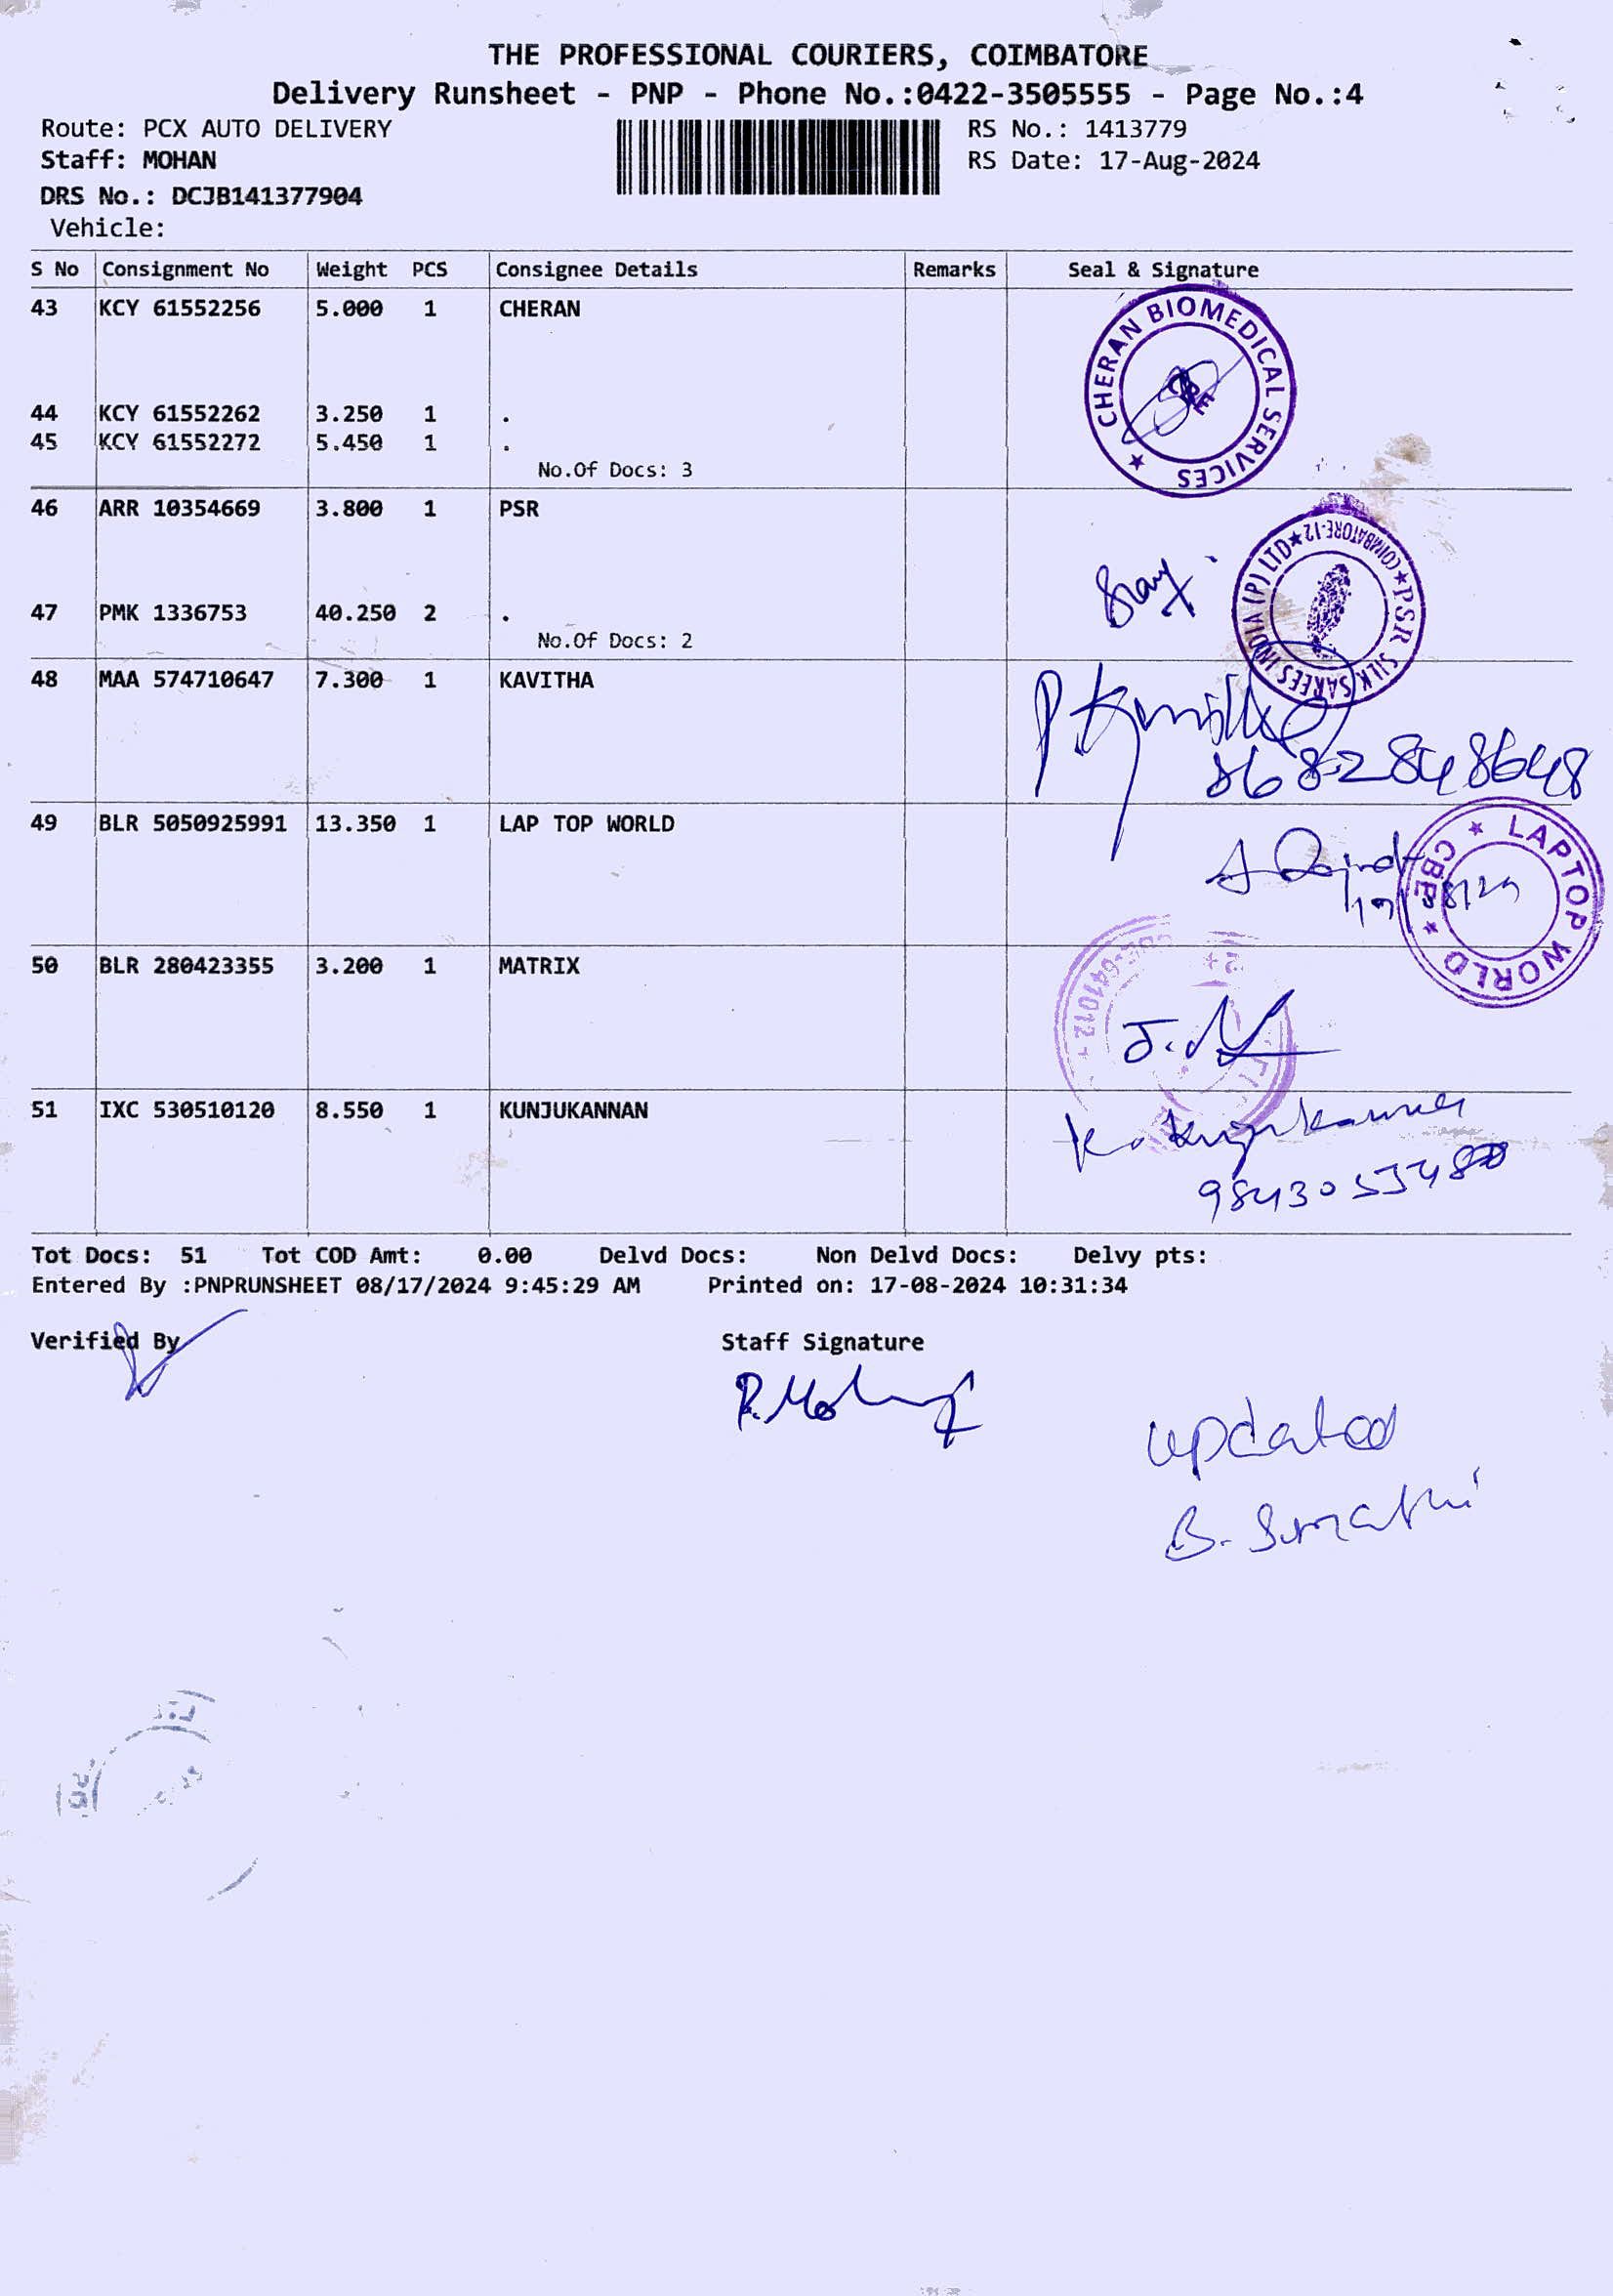 THE PROFESSIONAL COURIERS, COIMBATORE
Delivery Runsheet - PNP - Phone No.:0422-3505555 - Page No.:4
Route: PCX AUTO DELIVERY RS No.: 1413779
Staff: MOHAN RS Date: 17-Aug-2024
DRS No.: DCJB141377904
Vehicle:
S No Consignment No Weight PCS Consignee Details Remarks Seal & Signature
43 KCY 61552256 5.000 1 CHERAN
★ CHERAN BIOMEDICAL SERVICES
CBE
44 KCY 61552262 3.250 1 .
45 KCY 61552272 5.450 1 .
No.Of Docs: 3
46 ARR 10354669 3.800 1 PSR
★ PSR SILK SAREES INDIA (P) LTD ★ COIMBATORE-12
47 PMK 1336753 40.250 2 .
No.Of Docs: 2
48 MAA 574710647 7.300 1 KAVITHA
49 BLR 5050925991 13.350 1 LAP TOP WORLD
★ LAPTOP WORLD ★ CBE
50 BLR 280423355 3.200 1 MATRIX
641012
51 IXC 530510120 8.550 1 KUNJUKANNAN
Tot Docs: 51 Tot COD Amt: 0.00 Delvd Docs: Non Delvd Docs: Delvy pts:
Entered By :PNPRUNSHEET 08/17/2024 9:45:29 AM Printed on: 17-08-2024 10:31:34
Verified By Staff Signature
updated
B. Sumathi